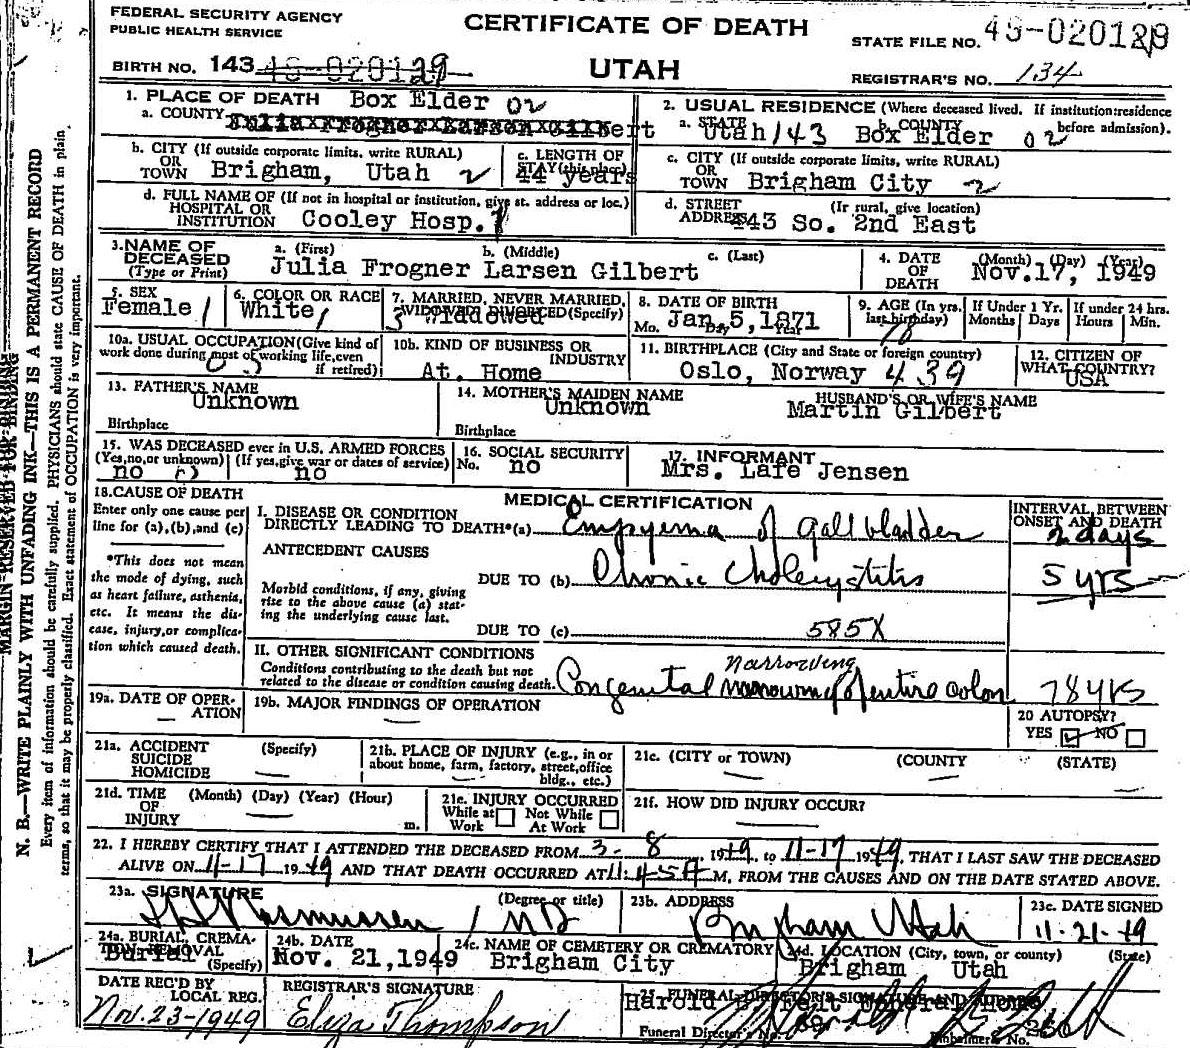 FEDERAL SECURITY AGENCY
PUBLIC HEALTH SERVICE
CERTIFICATE OF DEATH
STATE FILE NO. 49-020128
BIRTH NO. 143 49-020129
UTAH
REGISTRAR'S NO. 134
1. PLACE OF DEATH Box Elder 02
a. COUNTY Julia Frogner Larsen Gilbert
2. USUAL RESIDENCE (Where deceased lived. If institution:residence before admission).
a. STATE Utah 143 b. COUNTY Box Elder 02
b. CITY (If outside corporate limits, write RURAL)
OR
TOWN Brigham, Utah 2
c. LENGTH OF
STAY (this place)
44 years
c. CITY (If outside corporate limits, write RURAL)
OR
TOWN Brigham City 2
d. FULL NAME OF (If not in hospital or institution, give st. address or loc.)
HOSPITAL OR
INSTITUTION Cooley Hosp. 1
d. STREET (If rural, give location)
ADDRESS 443 So. 2nd East
3. NAME OF
DECEASED
(Type or Print)
a. (First) b. (Middle) c. (Last)
Julia Frogner Larsen Gilbert
4. DATE
OF
DEATH
(Month) (Day) (Year)
Nov.17, 1949
5. SEX
Female 1
6. COLOR OR RACE
White 1
7. MARRIED, NEVER MARRIED,
WIDOWED, DIVORCED (Specify)
3 Widdowed
8. DATE OF BIRTH
Mo. Day Year
Jan 5, 1871
9. AGE (In yrs.
last birthday)
78
If Under 1 Yr.
Months Days
If under 24 hrs.
Hours Min.
10a. USUAL OCCUPATION (Give kind of
work done during most of working life, even
if retired)
10b. KIND OF BUSINESS OR
INDUSTRY
At. Home
11. BIRTHPLACE (City and State or foreign country)
Oslo, Norway 439
12. CITIZEN OF
WHAT COUNTRY?
USA
13. FATHER'S NAME
Unknown
Birthplace
14. MOTHER'S MAIDEN NAME
Unknown
Birthplace
HUSBAND'S OR WIFE'S NAME
Martin Gilbert
15. WAS DECEASED ever in U.S. ARMED FORCES
(Yes, no, or unknown) (If yes, give war or dates of service)
no 0 no
16. SOCIAL SECURITY
No. no
17. INFORMANT
Mrs. Lafe Jensen
18. CAUSE OF DEATH
Enter only one cause per
line for (a), (b), and (c)
*This does not mean
the mode of dying, such
as heart failure, asthenia,
etc. It means the dis-
ease, injury, or complica-
tion which caused death.
MEDICAL CERTIFICATION
INTERVAL BETWEEN
ONSET AND DEATH
I. DISEASE OR CONDITION
DIRECTLY LEADING TO DEATH*(a) Empyema of gall bladder 2 days
ANTECEDENT CAUSES
Morbid conditions, if any, giving
rise to the above cause (a) stat-
ing the underlying cause last.
DUE TO (b) Chronic Cholecystitis 5 yrs
DUE TO (c) 585X
II. OTHER SIGNIFICANT CONDITIONS
Conditions contributing to the death but not
related to the disease or condition causing death.
narrowing
Congenital narrowing of entire colon 78 yrs
19a. DATE OF OPER-
ATION —
19b. MAJOR FINDINGS OF OPERATION
—
20 AUTOPSY?
YES ☑ NO ☐
21a. ACCIDENT
SUICIDE
HOMICIDE
(Specify)
—
21b. PLACE OF INJURY (e.g., in or
about home, farm, factory, street, office
bldg., etc.)
21c. (CITY or TOWN) (COUNTY) (STATE)
21d. TIME
OF
INJURY
(Month) (Day) (Year) (Hour)
m.
21e. INJURY OCCURRED
While at Work ☐ Not While At Work ☐
21f. HOW DID INJURY OCCUR?
22. I HEREBY CERTIFY THAT I ATTENDED THE DECEASED FROM 3-8, 1949, to 11-17 1949, THAT I LAST SAW THE DECEASED
ALIVE ON 11-17 1949 AND THAT DEATH OCCURRED AT 11:45A M, FROM THE CAUSES AND ON THE DATE STATED ABOVE.
23a. SIGNATURE (Degree or title)
Rasmussen MD
23b. ADDRESS
Brigham Utah
23c. DATE SIGNED
11-21-49
24a. BURIAL, CREMA-
TION, REMOVAL
(Specify)
Burial
24b. DATE
Nov. 21, 1949
24c. NAME OF CEMETERY OR CREMATORY
Brigham City
24d. LOCATION (City, town, or county) (State)
Brigham Utah
DATE REC'D BY
LOCAL REG.
Nov. 23-1949
REGISTRAR'S SIGNATURE
Eliza Thompson
25. FUNERAL DIRECTOR'S SIGNATURE AND ADDRESS
Harold B. Felt Funeral Home
Funeral Director's No.
Embalmer's No.
MARGIN RESERVED FOR BINDING
N. B.—WRITE PLAINLY WITH UNFADING INK—THIS IS A PERMANENT RECORD
Every item of information should be carefully supplied. PHYSICIANS should state CAUSE OF DEATH in plain
terms, so that it may be properly classified. Exact statement of OCCUPATION is very important.